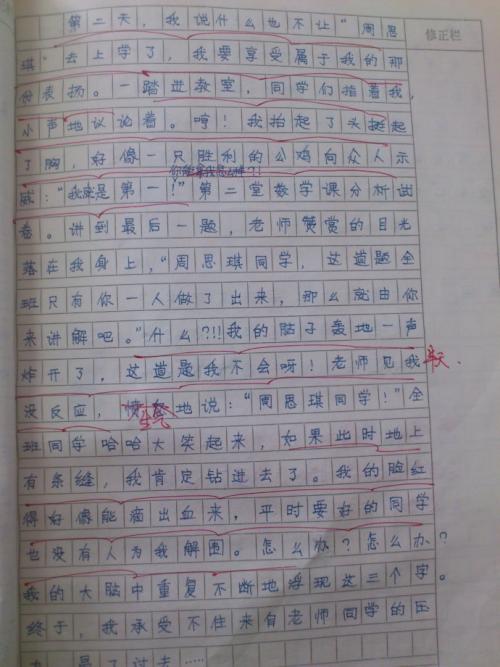 第二天，我说什么也不让“周思
修正栏
琪”去上学了，我要享受属于我的那
份表扬。一踏进教室，同学们指着我，
小声地议论着。哼！我抬起了头挺起
了胸，好像一只胜利的公鸡向众人示
威：“我就是第一！”第二堂数学课分析试
卷。讲到最后一题，老师赞赏的目光
落在我身上，“周思琪同学，这道题全
班只有你一人做了出来，那么就由你
来讲解吧。”什么?!!我的脑子轰地一声
炸开了，这道题我不会呀！老师见我
半天
没反应，地说：“周思琪同学！”全
生气
班同学哈哈大笑起来，如果此时地上
有条缝，我肯定钻进去了。我的脸红
得好像能滴出血来，平时要好的同学
也没有人为我解围。怎么办？怎么办？
我的大脑中重复不断地浮现这三个字。
终于，我承受不住来自老师同学的压
晕了过去……